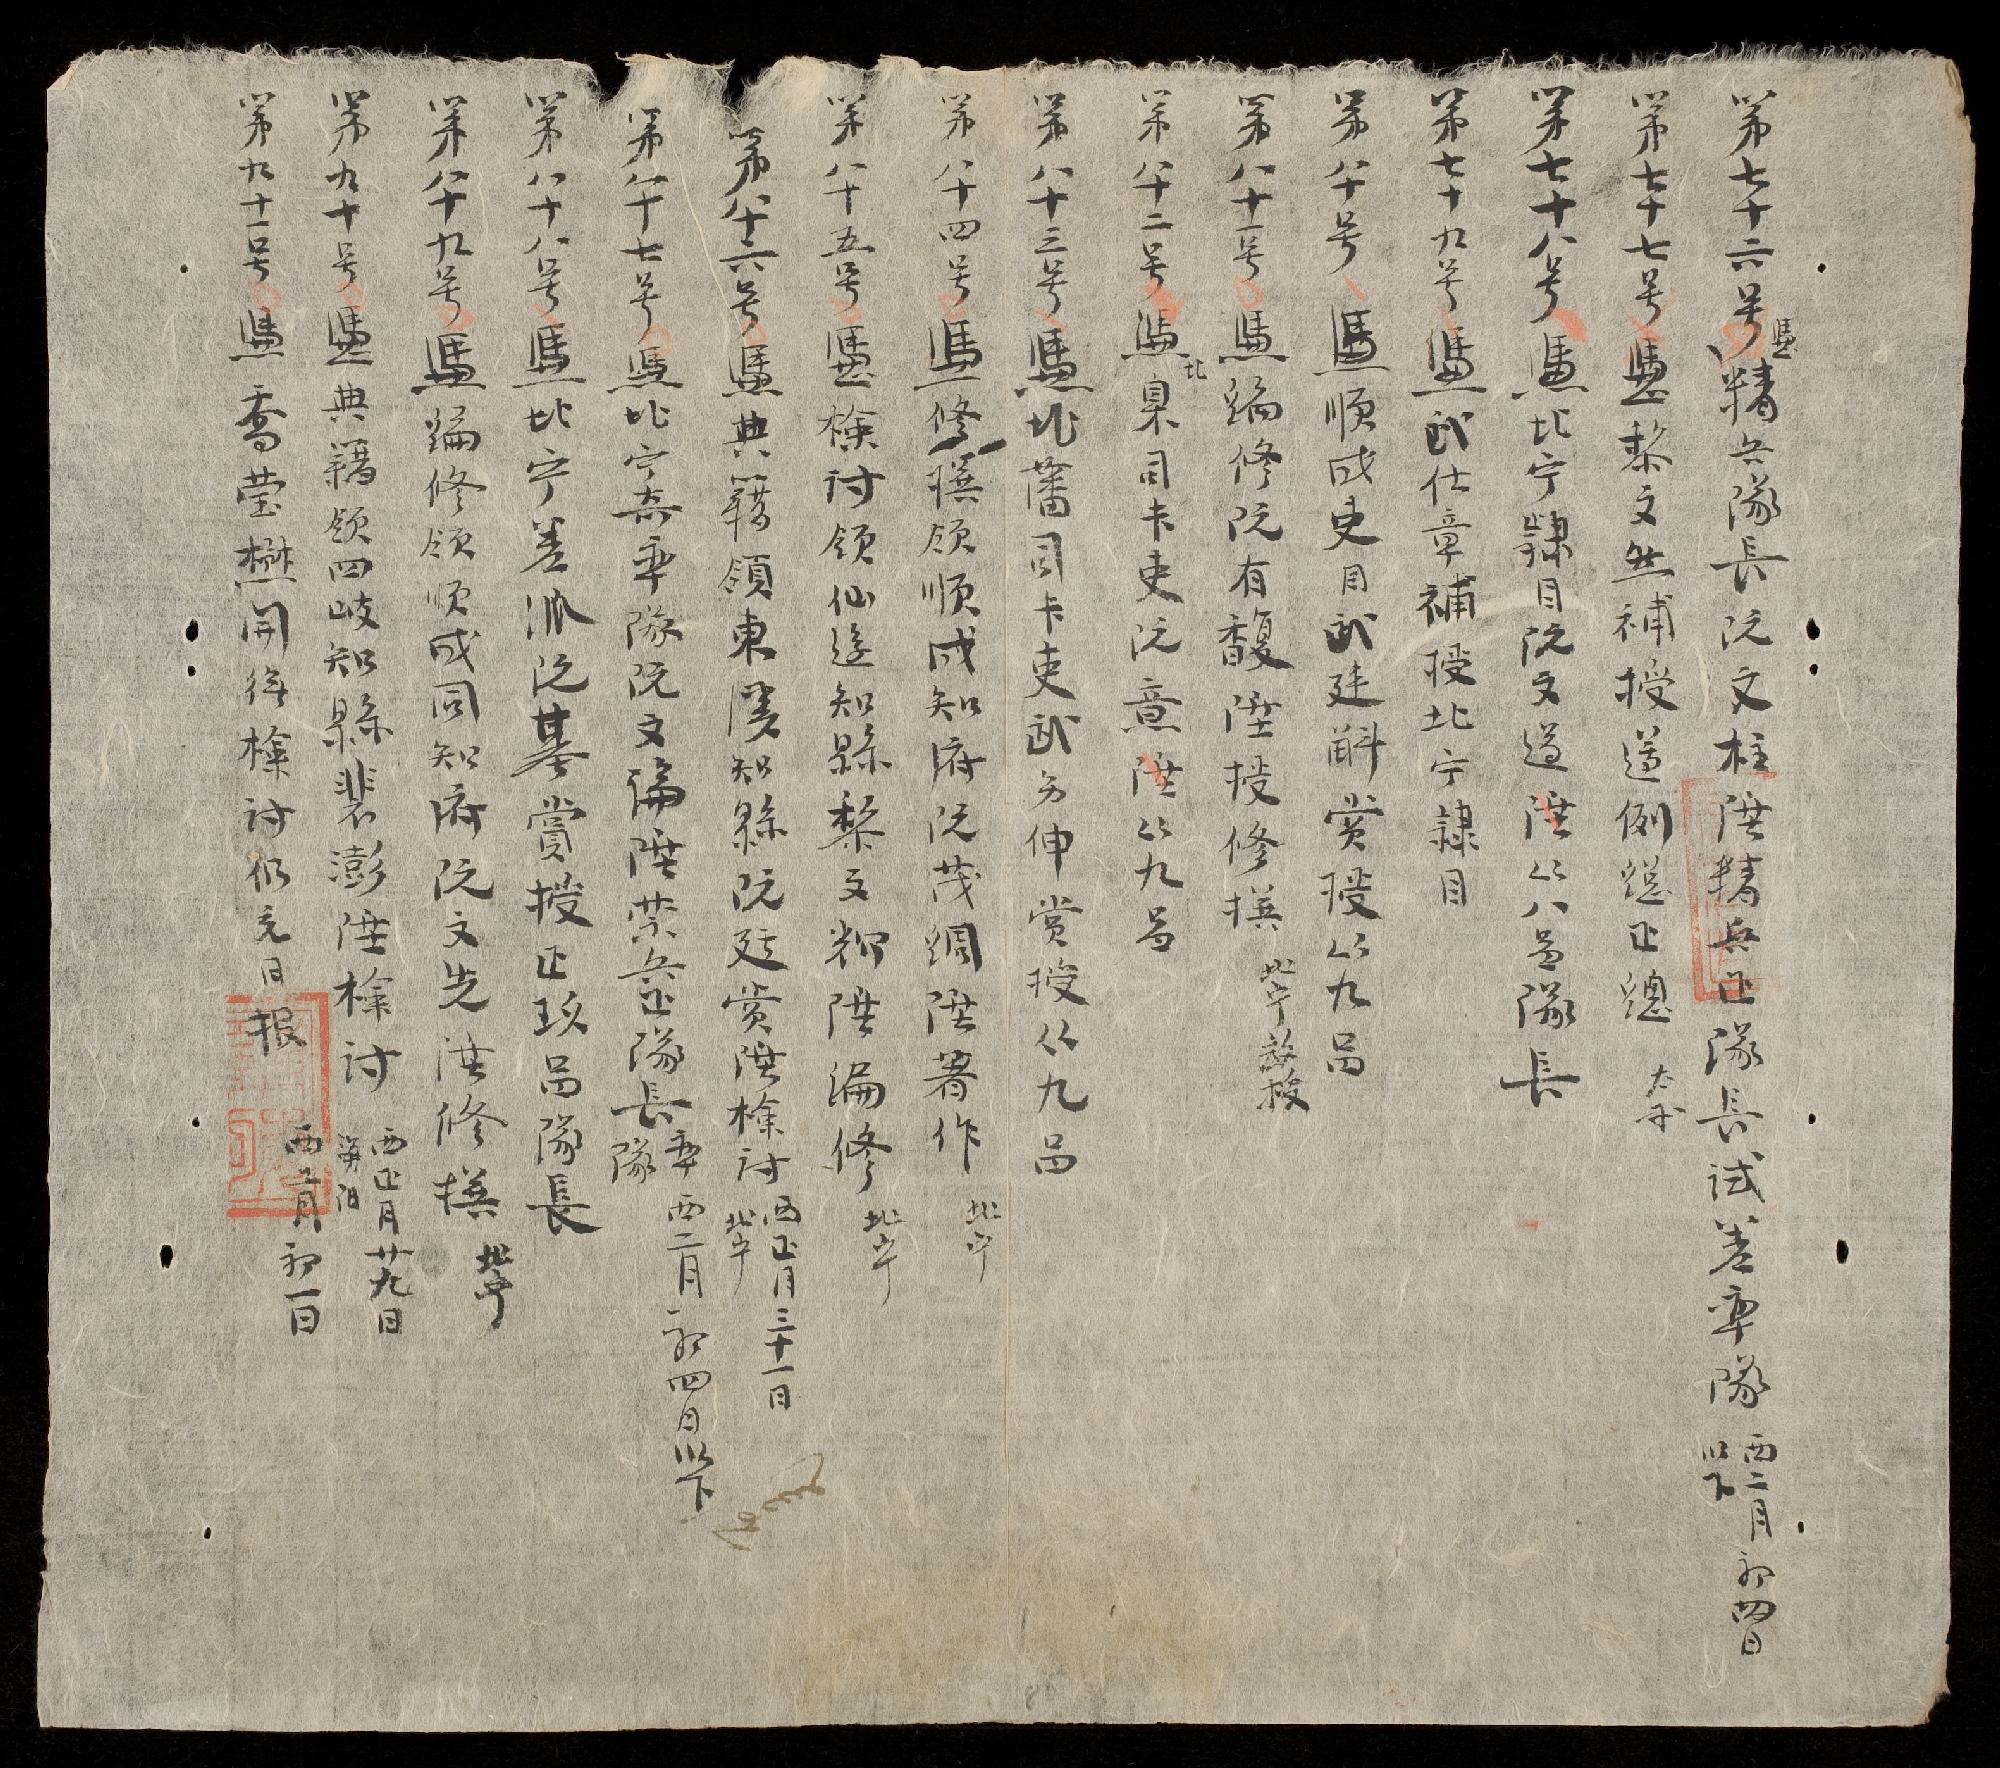 第七十六号憑精兵隊長阮文柱陞精兵正隊長試差率隊 西二月初四日以下
第七十七号憑黎文無補授遵例總正總
第七十八号憑北宁隸目阮文过陞從八品隊長
第七十九号憑武仕章補授北宁隸目
第八十号憑順成吏目武廷斛賞授從九品
第八十一号憑編修阮有馥陞授修撰 北宁
第八十二号憑北臬司卡吏阮意陞從九品
第八十三号憑北藩司卡吏武方伸賞授從九品
第八十四号憑修撰領順成知府阮茂綢陞著作 北宁
第八十五号憑檢討領仙遊知縣黎文粰陞編修 北宁
第八十六号憑典籍領東関知縣阮廷賞陞檢討 西正月三十一日 北宁
第八十七号憑北宁率隊阮文偏陞禁兵正隊長率隊 西二月初四日以下
第八十八号憑北宁差派阮基賞授正玖品隊長
第八十九号憑編修領順成同知府阮文先陞修撰 北宁
第九十号憑典籍領四岐知縣裴澎陞檢討 西正月廿九日 海陽
第九十一号憑喬瑩懋開復檢討仍充日报 西二月初一日